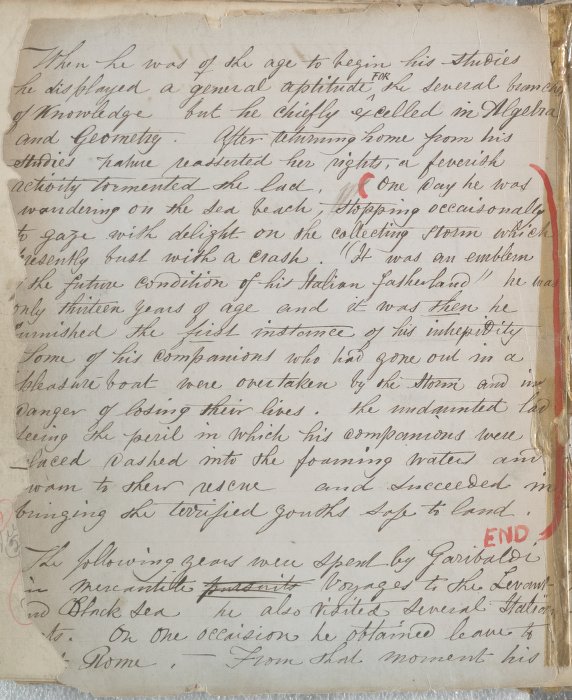 When he was of the age to begin his studies
he displayed a general aptitude FOR the several branch
of Knowledge but he chiefly excelled in Algebra
and Geometry. After returning home from his
studies nature reasserted her right, a feverish
activity tormented the lad. (One day he was
wandering on the sea beach stopping occaisonally
to gaze with delight on the collecting storm which
presently bust with a crash. "It was an emblem
the future condition of his Italian fatherland" he was
only thirteen years of age and it was then he
furnished the first instance of his intrepidity
Some of his companions who had gone out in a
pleasure boat were overtaken by the storm and in
danger of losing their lives. the undaunted lad
seeing the peril in which his companions were
placed dashed into the foaming waters and
swam to their rescue and succeeded in
bringing the terrified youths safe to land.
END
The following years were spent by Garibaldi
in mercantile pursuits Voyages to the Levant
and Black Sea he also visited several Italian
ts. On one occaision he obtained leave to
Rome. — From that moment his